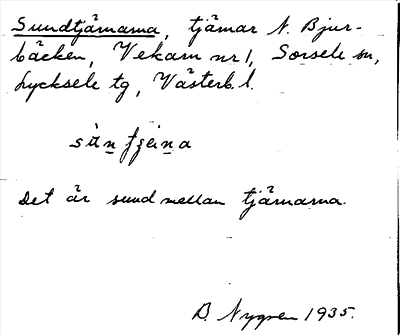 Sundtjärnarna, tjärnar N. Bjur-
bäcken, Vekarn nr 1, Sorsele sn,
Lycksele tg, Västerb. l.
Det är sund mellan tjärnarna.
B. Nygren 1935.